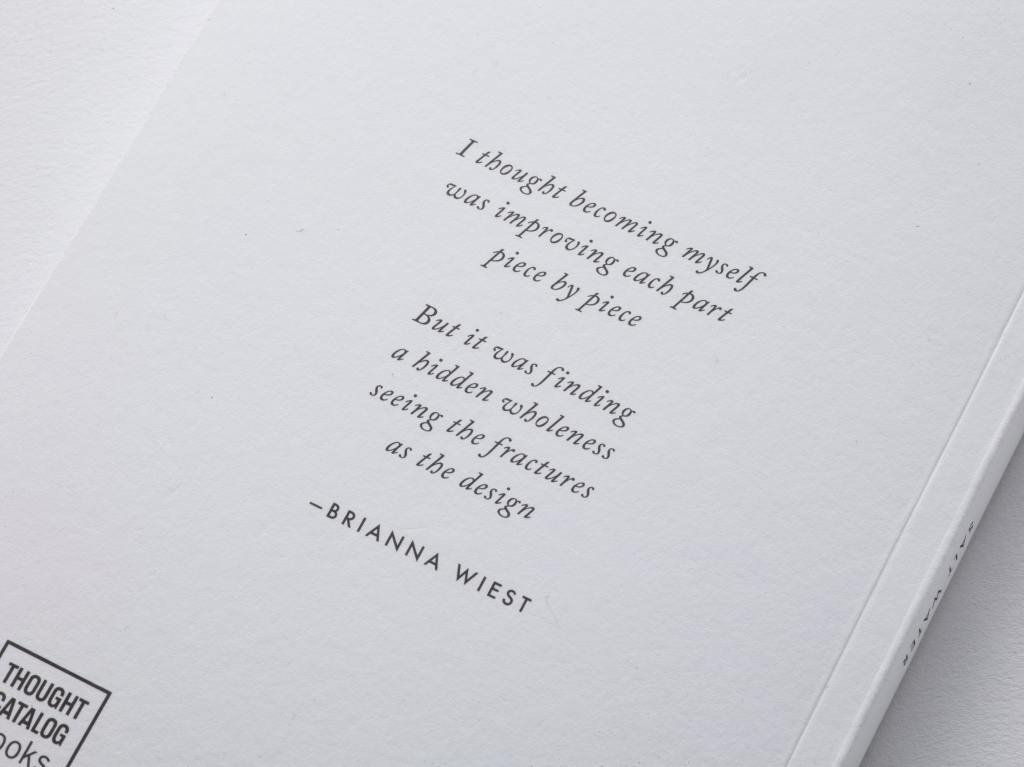 I thought becoming myself
was improving each part
piece by piece
But it was finding
a hidden wholeness
seeing the fractures
as the design
—BRIANNA WIEST
SALT WATER
THOUGHT
CATALOG
ooks